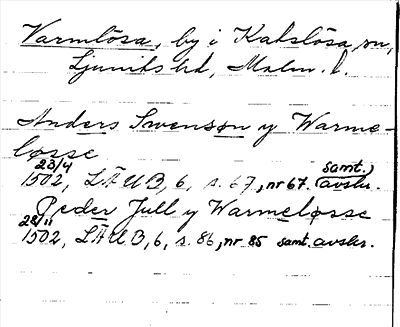 Varmlösa, by i Katslösa sn,
Ljunits hd, Malm. l.
Anders Swensøn y Warme-
løsse
23/4 samt.,
1502, LÄUB, 6, s. 67, nr 67. avskr.
Peder Jull y Warmeløsse
28/11
1502, LÄUB, 6, s. 86, nr 85 samt. avskr.